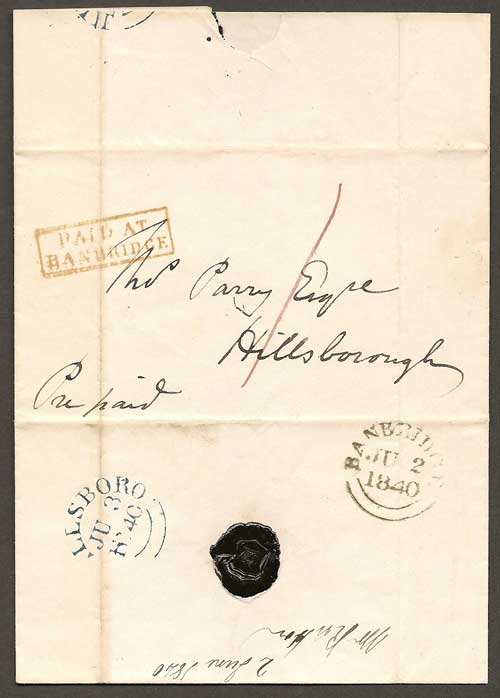 PAID AT
BANBRIDGE
Thos Parry Esqre
Hillsborough
Pre paid
BANBRIDGE
JU 2
1840
LLSBORO
JU 3
1840
Mr
2 June 1840